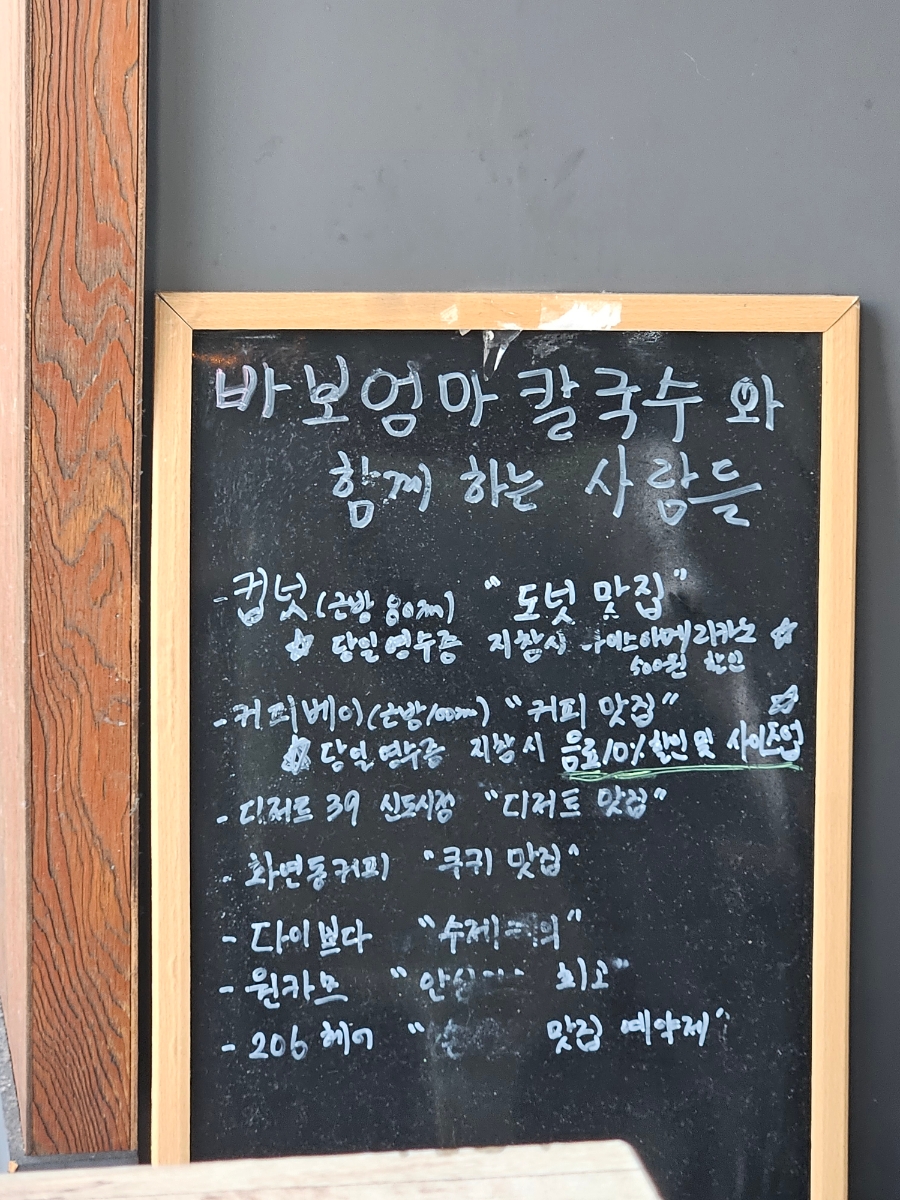 바보엄마 칼국수 와
함께 하는 사람들
- 컵넛 (근방 80m) "도넛 맛집"
☆ 당일영수증 지참시 아이스아메리카노 ☆
500원 할인
- 커피베이 (근방100m) "커피 맛집" ☆
☆ 당일 영수증 지참시 음료10%할인 및 사이즈업
- 디저트 39 신도시점 "디저트 맛집"
- 화면동커피 "쿠키 맛집"
- 다이쁘다 "수제
- 원카브 " 최고"
- 206 헤어 " 맛집 예약제"